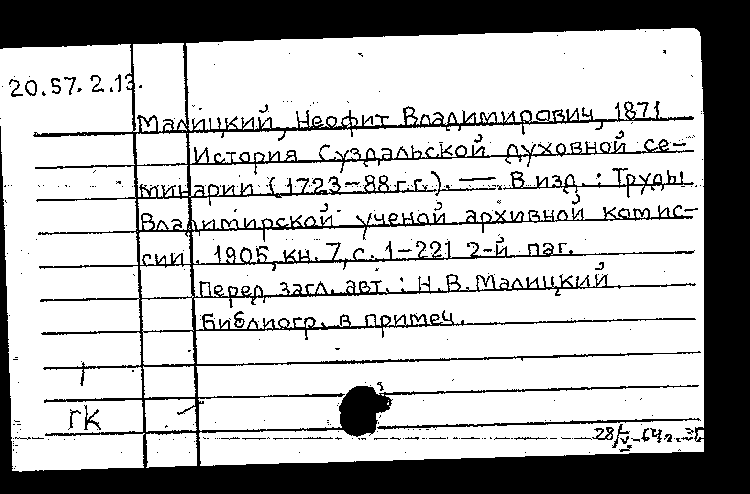 20.57.2.13.
Малицкий, Неофит Владимирович, 1871
История Суздальской духовной се-
минарии (1723-88 г.г.). — В изд.: Труды
Владимирской ученой архивной комис-
сии. 1905, кн. 7, с. 1-221 2-й паг.
Перед загл. авт.: Н.В. Малицкий.
Библиогр. в примеч.
1
ГК
28/V-64г.